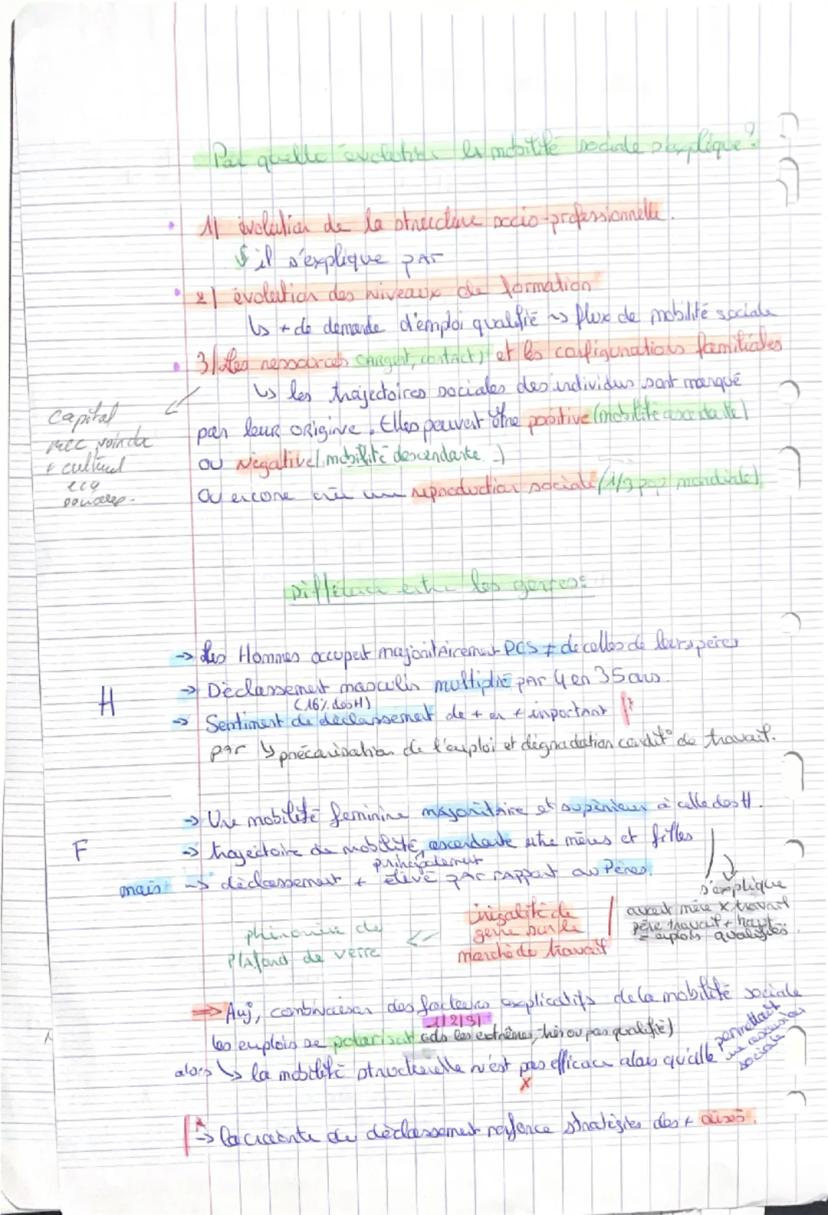 Par quelle évolution la mobilité sociale s'explique?
1/ évolution de la structure socio-professionnelle.
↳ il s'explique par
2/ évolution des niveaux de formation
↳ + de demande d'emploi qualifié ~> flux de mobilité sociale
3/ Les ressources (argent, contact) et les configurations familiales
↳ les trajectoires sociales des individus sont marqué
par leur origine. Elles peuvent être positive (mobilité ascendante)
ou négative (mobilité descendante.)
ou encore crée une reproduction sociale (1/3 pop mondiale)
Capital
+ culturel
eco
Différence entre les genres:
H
-> Les Hommes occupent majoritairement PCS ≠ de celles de leurs pères
-> Déclassement masculin multiplié par 4 en 35 ans
(16% des H)
-> Sentiment de déclassement de + en + important
par ↳ précarisation de l'emploi et dégradation condit° de travail.
F
-> Une mobilité féminine majoritaire et supérieur à celle des H.
-> trajectoire de mobilité, ascendante entre mères et filles
principalement
mais -> déclassement + élevé par rapport au Pères.
s'explique
avant mère x travail
père travail + haut
= emplois qualifiés.
inégalité de
genre sur le
marché de travail
phénomène de
plafond de verre
=> Auj, combinaison des facteurs explicatifs de la mobilité sociale
1/2/3/
les emplois se polarisent (ds les extrêmes, très ou pas qualifié)
alors ↳ la mobilité structurelle n'est pas efficace alors qu'elle permettait
une ascension
sociale
x
-> la crainte du déclassement renforce stratégies des + aisés.